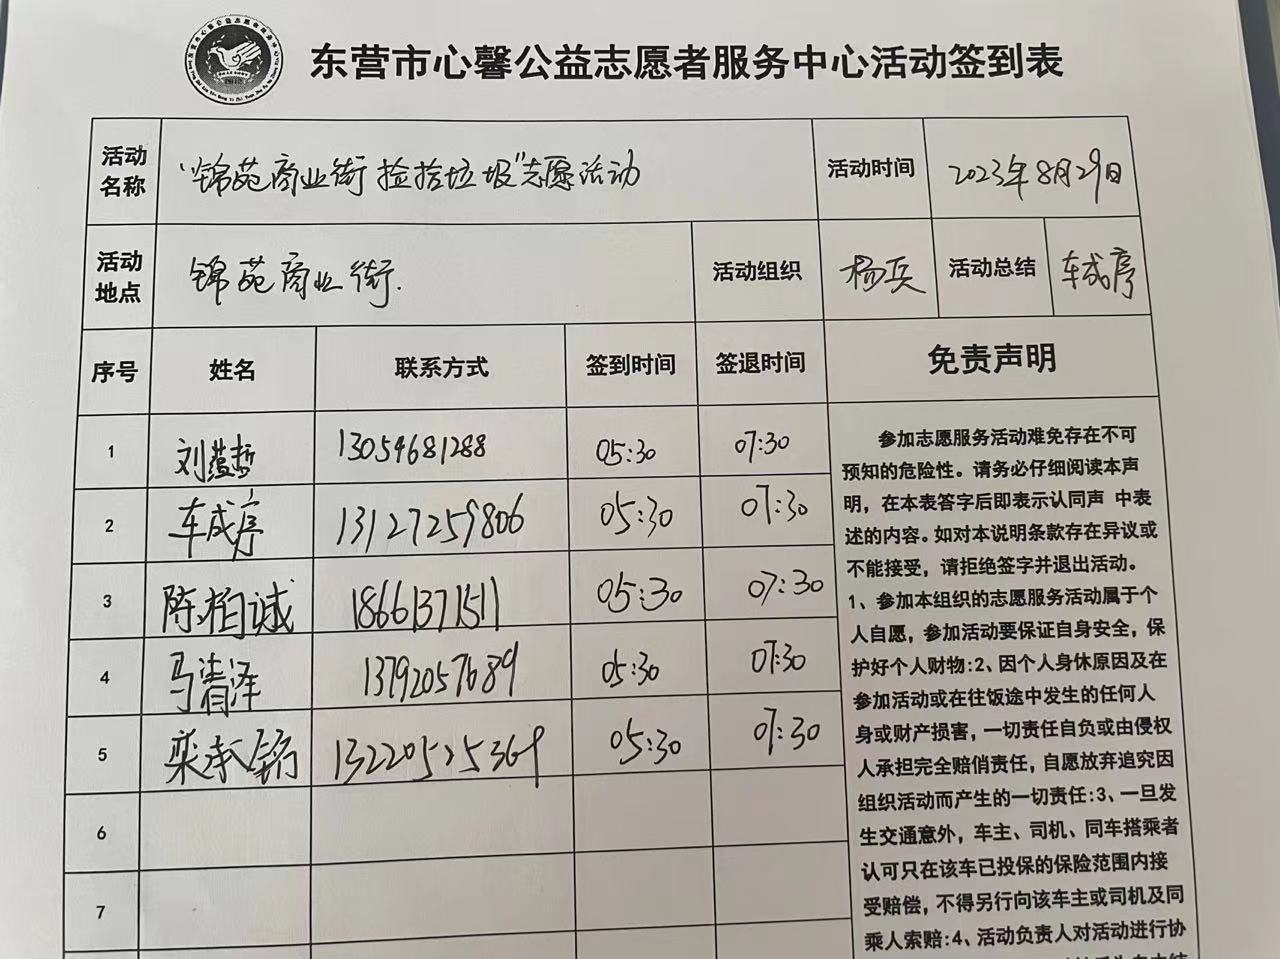 东营市心馨公益志愿者服务中心活动签到表
活动名称 “锦苑商业街捡拾垃圾”志愿活动 活动时间 2023年8月29日
活动地点 锦苑商业街. 活动组织 杨兵 活动总结 车成序
序号 姓名 联系方式 签到时间 签退时间 免责声明
1 刘蕴哲 13054681288 05:30 07:30
2 车成序 13127259806 05:30 07:30
3 陈柏诚 18661371511 05:30 07:30
4 马清泽 13792057689 05:30 07:30
5 栾承 13220525369 05:30 07:30
6
7
参加志愿服务活动难免存在不可
预知的危险性。请务必仔细阅读本声
明，在本表答字后即表示认同声 中表
述的内容。如对本说明条款存在异议或
不能接受，请拒绝签字并退出活动。
1、参加本组织的志愿服务活动属于个
人自愿，参加活动要保证自身安全，保
护好个人财物:2、因个人身休原因及在
参加活动或在往饭途中发生的任何人
身或财产损害，一切责任自负或由侵权
人承担完全赔俏责任，自愿放弃追究因
组织活动而产生的一切责任:3、一旦发
生交通意外，车主、司机、同车搭乘者
认可只在该车已投保的保险范围内接
受赔偿，不得另行向该车主或司机及同
乘人索赔:4、活动负责人对活动进行协